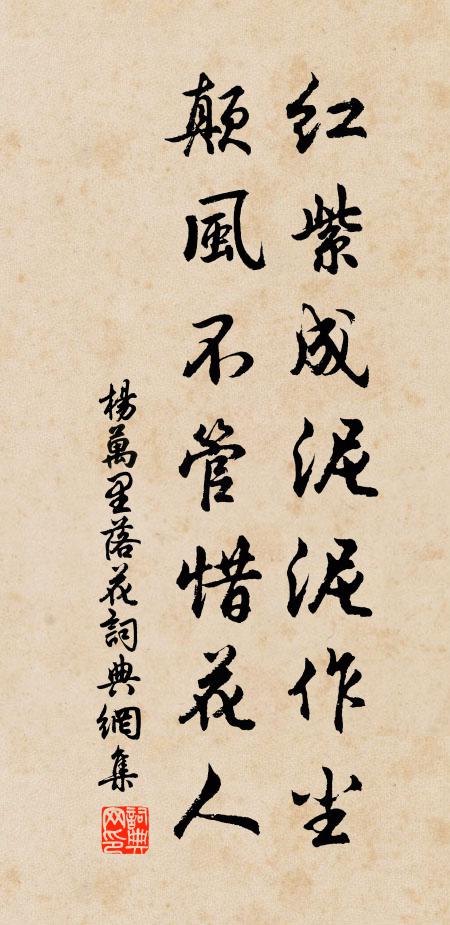 红紫成泥泥作尘
颠風不管惜花人
楊萬里落花詞典網集
詞典网印